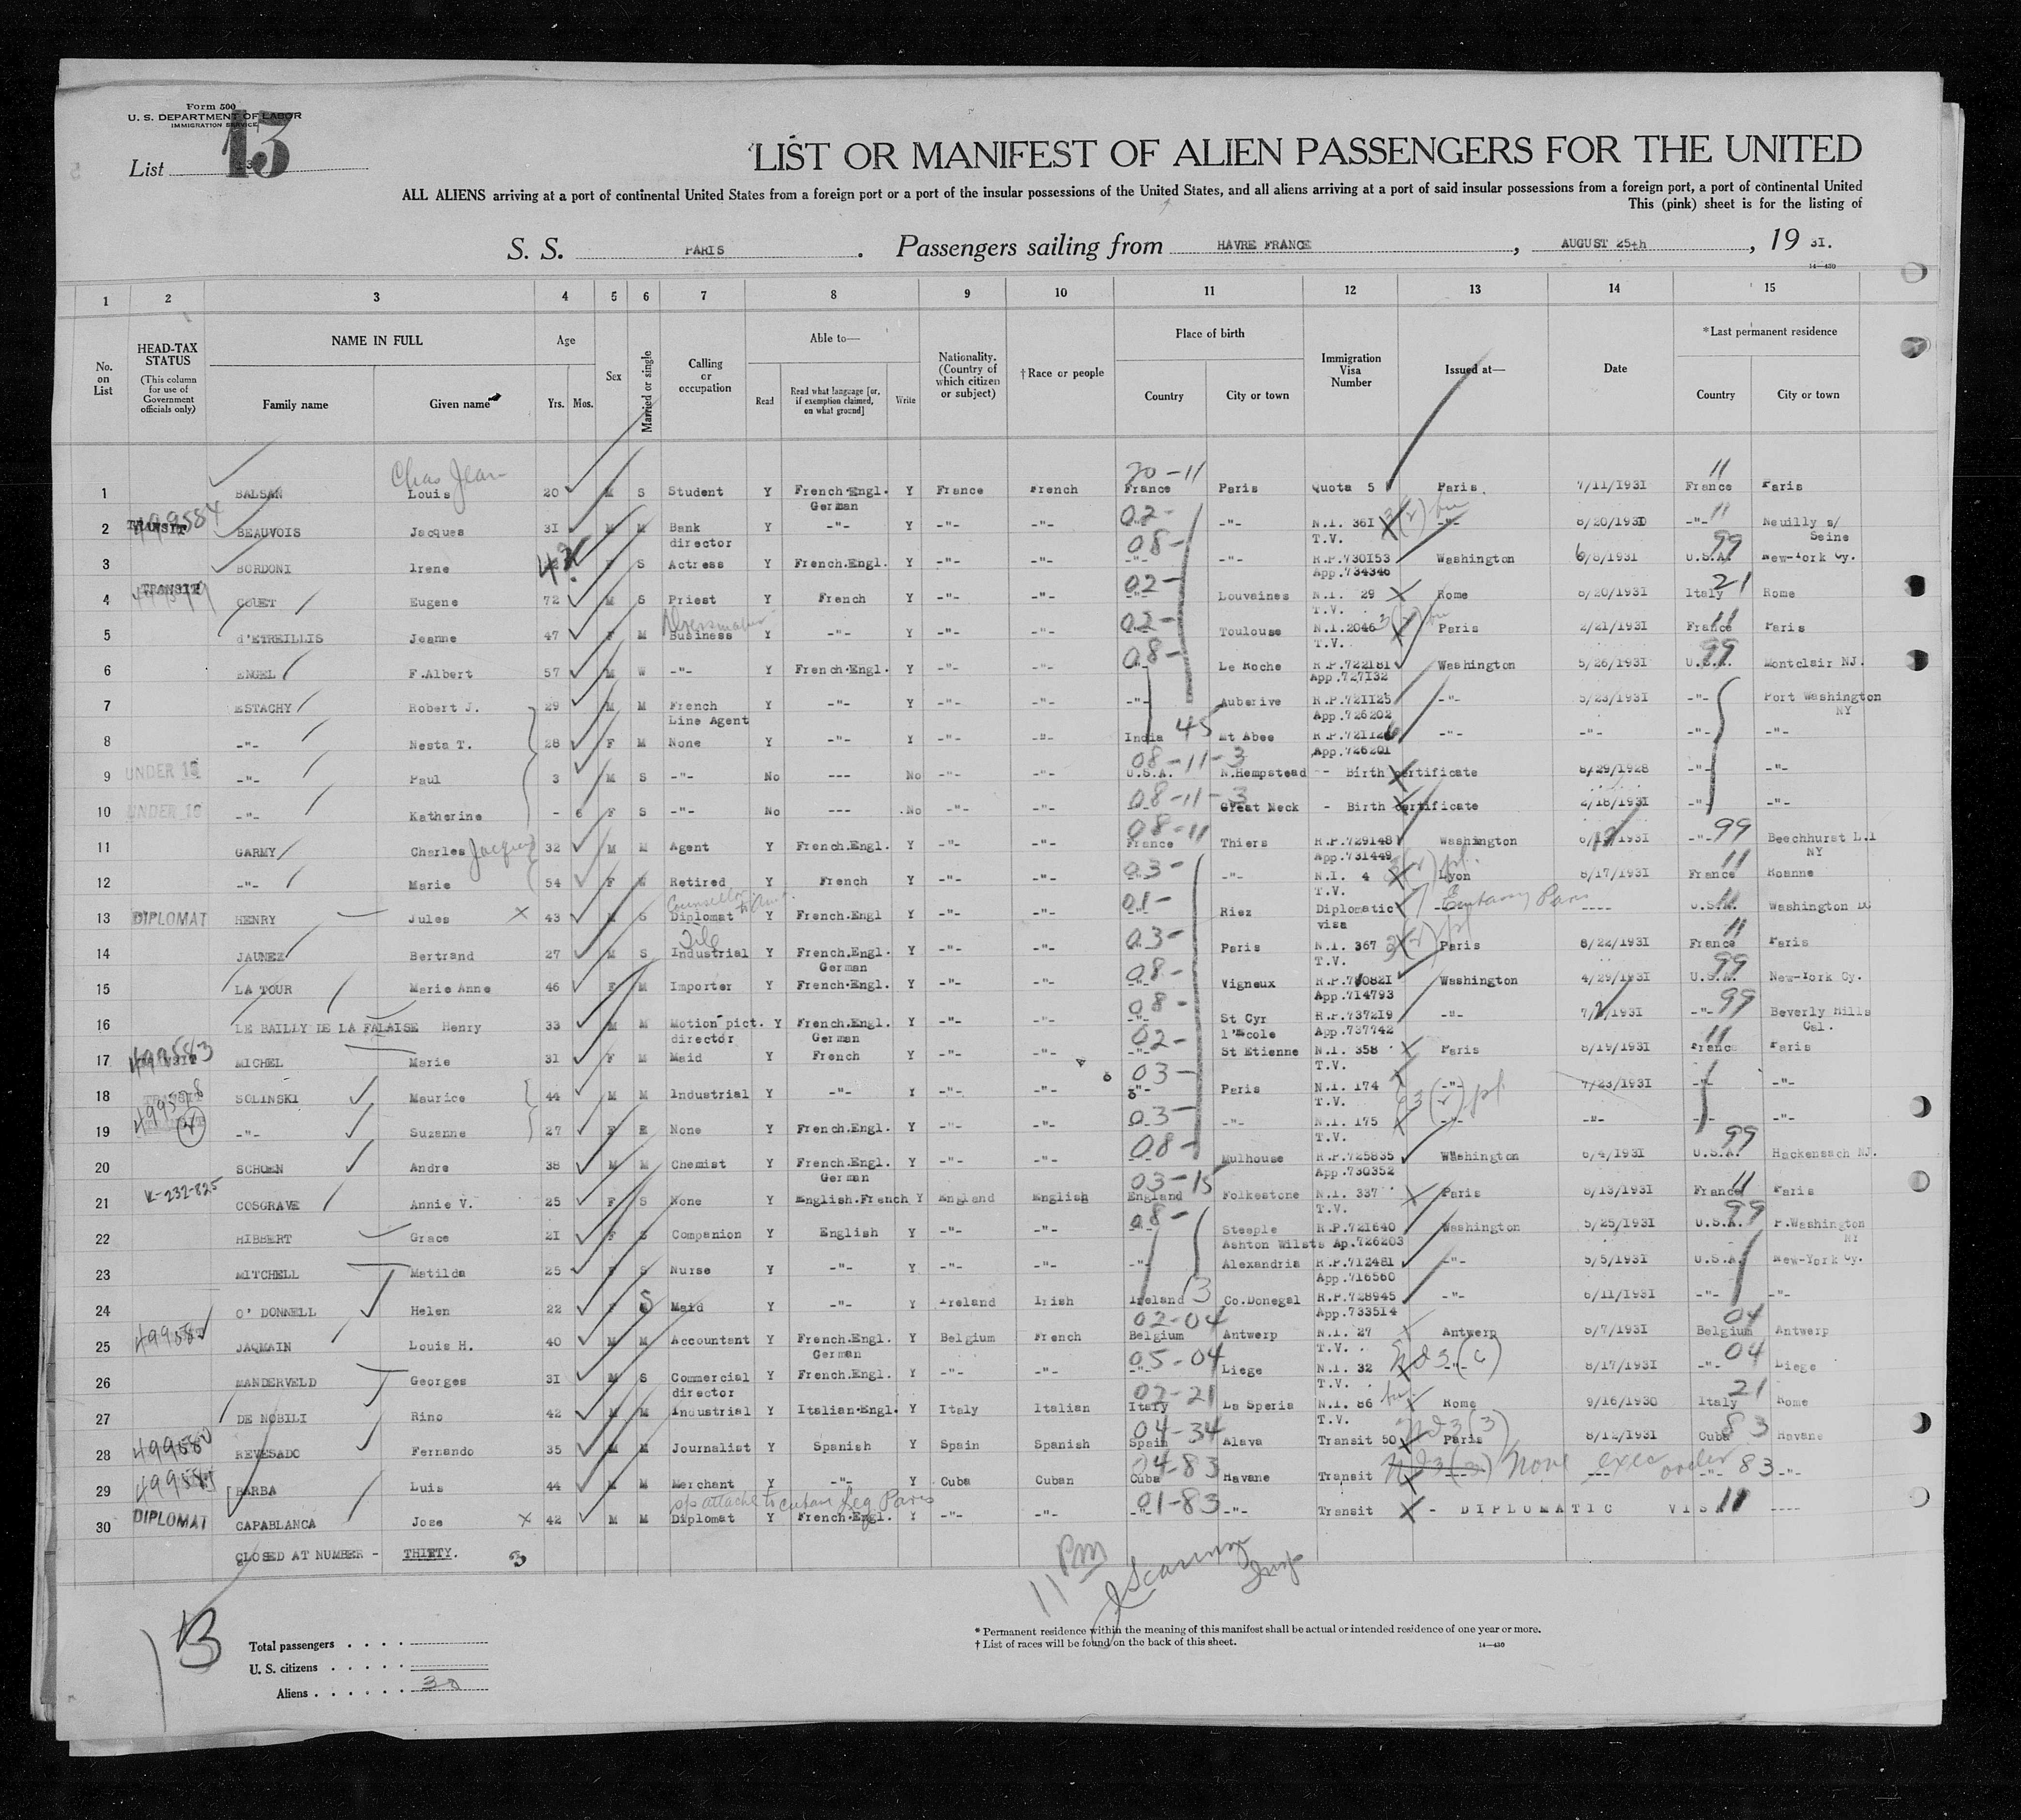 Form 500
U. S. DEPARTMENT OF LABOR
IMMIGRATION SERVICE
List 13
LIST OR MANIFEST OF ALIEN PASSENGERS FOR THE UNITED
ALL ALIENS arriving at a port of continental United States from a foreign port or a port of the insular possessions of the United States, and all aliens arriving at a port of said insular possessions from a foreign port, a port of continental United
This (pink) sheet is for the listing of
S. S. PARIS. Passengers sailing from HAVRE FRANCE, AUGUST 25th, 19 31.
14—430
1 2 3 4 5 6 7 8 9 10 11 12 13 14 15
No. on List
HEAD-TAX STATUS
(This column for use of Government officials only)
NAME IN FULL
Family name Given name
Age
Yrs. Mos.
Sex
Married or single
Calling or occupation
Able to—
Read Read what language [or, if exemption claimed, on what ground] Write
Nationality. (Country of which citizen or subject)
†Race or people
Place of birth
Country City or town
Immigration Visa Number
Issued at—
Date
*Last permanent residence
Country City or town
Chas Jean 20-11 11
1 BALSAN Louis 20 M S Student Y French.Engl. German Y France French France Paris Quota 5 Paris. 7/11/1931 France Paris
2 TRANSIT BEAUVOIS Jacques 31 M M Bank director Y -"- Y -"- -"- 02- -"- N.I. 361 T.V. -"- 8/20/1930 -"- 11 Neuilly s/ Seine
3 BORDONI Irene F S Actress Y French.Engl. Y -"- -"- 08- -"- -"- R.P.730153 App.734346 Washington 6/8/1931 U.S.A. 99 New-York Cy.
4 TRANSIT COUET Eugene 72 M S Priest Y French Y -"- -"- 02- -"- Louvaines N.I. 29 T.V. Rome 8/20/1931 Italy 21 Rome
5 d'ETREILLIS Jeanne 47 F M Business Y -"- Y -"- -"- 02- -"- Toulouse N.I.2046 T.V. Paris 2/21/1931 France 11 Paris
6 ENGEL F.Albert 57 M W -"- Y French.Engl. Y -"- -"- 08- Le Roche R.P.722181 App.727132 Washington 5/26/1931 U.S.A. 99 Montclair NJ.
7 ESTACHY Robert J. 29 M M French Line Agent Y -"- Y -"- -"- -"- Auberive R.P.721125 App.726202 -"- 5/23/1931 -"- Port Washington NY
8 -"- Nesta T. 28 F M None Y -"- Y -"- -"- India 45 Mt Abee App.726201 -"- -"- -"- -"-
9 UNDER 16 -"- Paul 3 M S -"- No --- No -"- -"- 08-11-3 U.S.A. N.Hempstead - Birth certificate 8/29/1928 -"- -"-
10 UNDER 16 -"- Katherine - 6 F S -"- No --- No -"- -"- 08-11-3 Great Neck - Birth certificate 2/18/1931 -"- -"-
11 GARMY Charles Jacques 32 M M Agent Y French.Engl. Y -"- -"- 08-11 France Thiers R.P.729148 App.731449 Washington -"- 99 Beechhurst L.I NY
12 -"- Marie 54 F W Retired Y French Y -"- -"- 03- -"- N.I. 4 T.V. Lyon 8/17/1931 France 11 Roanne
13 DIPLOMAT HENRY Jules X 43 M S Diplomat Y French.Engl Y -"- -"- 01- Riez Diplomatic visa Embassy Paris ---- U.S.A. Washington DC
14 JAUNEZ Bertrand 27 M S Industrial Y French.Engl. German Y -"- -"- 03- Paris N.I. 367 T.V. Paris 8/22/1931 France 11 Paris
15 LA TOUR Marie Anne 46 F M Importer Y French.Engl. Y -"- -"- 08- -"- Vigneux App.714793 Washington 4/29/1931 U.S.A. 99 New-York Cy.
16 LE BAILLY DE LA FALAISE Henry 33 M M Motion pict. director Y French.Engl. German Y -"- -"- 08- -"- St Cyr l'Ecole R.P.737219 App.737742 -"- -"- 99 Beverly Hills Cal.
17 MICHEL Marie 31 F M Maid Y French Y -"- -"- 02- -"- St Etienne N.I. 358 T.V. Paris 8/19/1931 France 11 Paris
18 SOLINSKI Maurice 44 M M Industrial Y -"- Y -"- -"- 03- -"- Paris N.I. 174 T.V. -"- 7/23/1931 -"- -"-
19 -"- Suzanne 27 F None Y French.Engl. Y -"- -"- 03- -"- N.I. 175 T.V. -"- -"- -"- -"-
20 SCHOEN Andre 38 M M Chemist Y French.Engl. German Y -"- -"- 08- Mulhouse R.P.725835 App.730352 Washington 6/4/1931 U.S.A. 99 Hackensach NJ.
21 K-232-825 COSGRAVE Annie V. 25 F S None Y English.French Y England English 03-15 England Folkestone N.I. 337 T.V. Paris 8/13/1931 France 11 Paris
22 HIBBERT Grace 21 F S Companion Y English Y -"- -"- 08- Steeple Ashton Wilsts R.P.721640 Ap.726203 Washington 5/25/1931 U.S.A. 99 P.Washington NY
23 MITCHELL Matilda 25 F S Nurse Y -"- Y -"- -"- -"- Alexandria R.P.712481 App.716560 -"- 5/5/1931 U.S.A. New-York Cy.
24 O' DONNELL Helen 22 F S Maid Y -"- Y Ireland Irish Ireland 13 Co.Donegal R.P.728945 App.733514 -"- 6/11/1931 -"- -"-
25 JAQMAIN Louis H. 40 M M Accountant Y French.Engl. German Y Belgium French 02-04 Belgium Antwerp N.I. 27 T.V. Antwerp 8/7/1931 Belgium 04 Antwerp
26 MANDERVELD Georges 31 M S Commercial director Y French.Engl. Y -"- -"- 05-04 -"- Liege N.I. 32 T.V. -"- 8/17/1931 -"- 04 Liege
27 DE NOBILI Rino 42 M M Industrial Y Italian.Engl. Y Italy Italian 02-21 Italy La Speria N.I. 86 T.V. Rome 9/16/1930 Italy 21 Rome
28 REVESADO Fernando 35 M M Journalist Y Spanish Y Spain Spanish 04-34 Spain Alava Transit 50 Paris 8/12/1931 Cuba 83 Havane
29 BARBA Luis 44 M M Merchant Y -"- Y Cuba Cuban 04-83 Cuba Havane Transit None exec order -"- 83 -"-
sp attache to cuban Leg Paris
30 DIPLOMAT CAPABLANCA Jose X 42 M M Diplomat Y French.Engl. Y -"- -"- 01-83 -"- -"- Transit - DIPLOMATIC VISA ----
CLOSED AT NUMBER - THIRTY. 3
11 Pm
B
Total passengers . . . .
U. S. citizens . . . . .
Aliens . . . . . . 30
* Permanent residence within the meaning of this manifest shall be actual or intended residence of one year or more.
† List of races will be found on the back of this sheet.
14—430